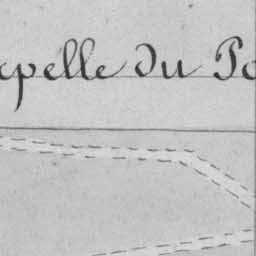 epelle du Po